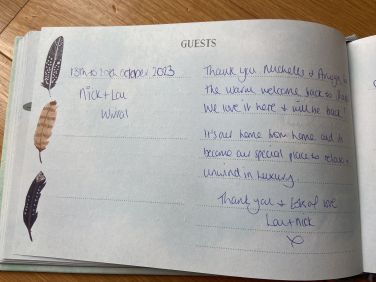 GUESTS
18th to 20th October 2023
Nick + Lou
Wirral
Thank you Michelle & 
the warm welcome back to
We love it here & will be back!
It's our home from home and is
become our special place to relax +
unwind in luxury.
Thank you & lots of love
Lou + Nick
x